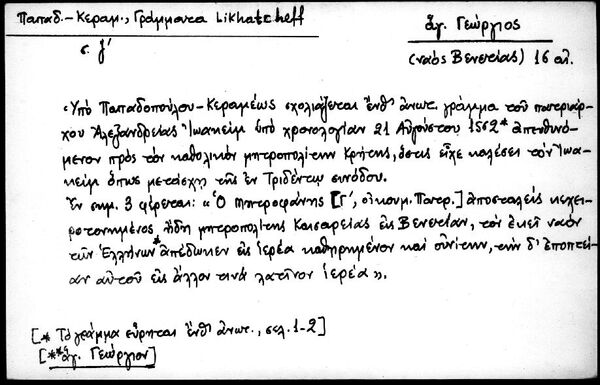 Παπαδ.-Κεραμ., Γράμματα Likhatcheff
σ. ζ'
ἅγ. Γεώργιος
(ναὸς Βενετίας) 16 αἰ.
«Ὑπὸ Παπαδοπούλου-Κεραμέως σχολιάζεται ἔνθ' ἀνωτ. γράμμα τοῦ πατριάρ-
χου Ἀλεξανδρείας Ἰωακεὶμ ὑπὸ χρονολογίαν 21 Αὐγούστου 1562* ἀπευθυνό-
μενον πρὸς τὸν καθολικὸν μητροπολίτην Κρήτης, ὅστις εἶχε καλέσει τὸν Ἰωα-
κεὶμ ὅπως μετάσχῃ τῆς ἐν Τριδέντῳ συνόδου.
Ἐν σημ. 3 φέρεται: «Ὁ Μητροφάνης [Γ', οἰκουμ. Πατρ.] ἀποσταλεὶς κεχει-
ροτονημένος ἤδη μητροπολίτης Καισαρείας εἰς Βενετίαν, τὸν ἐκεῖ ναὸν
τῶν Ἑλλήνων** ἀπέδωκεν εἰς ἱερέα καθηρημένον καὶ οὐνίτην, τὴν δ' ἐποπτεί-
αν αὐτοῦ εἰς ἄλλον τινὰ λατῖνον ἱερέα».
[* Τὸ γράμμα εὕρηται ἔνθ' ἀνωτ., σελ. 1-2]
[** ἁγ. Γεώργιον]